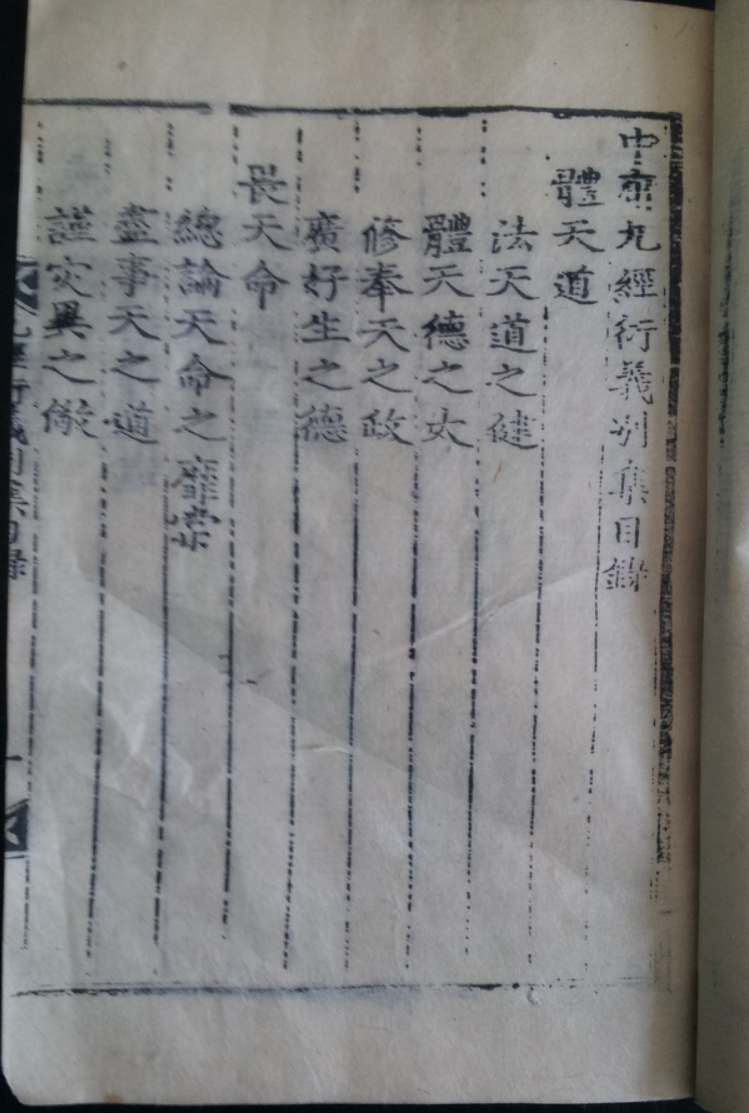 中庸九經衍義別集目錄
體天道
法天道之健
體天德之大
修奉天之政
廣好生之德
畏天命
總論天命之靡常
盡事天之道
謹災異之儆
九經衍義別集目錄
一